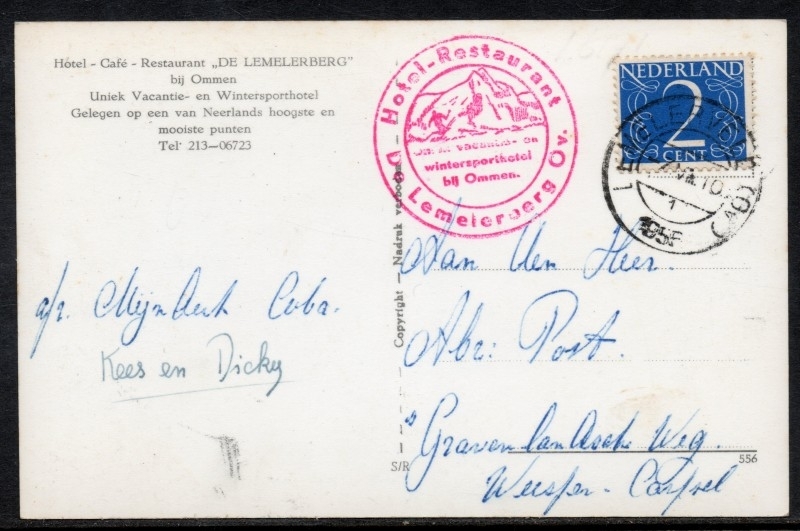 Hotel - Café - Restaurant „DE LEMELERBERG"
bij Ommen
Uniek Vacantie- en Wintersporthotel
Gelegen op een van Neerlands hoogste en
mooiste punten
Tel 213-06723
Hotel-Restaurant
De Lemelerberg Ov.
Uniek vacantie- en
wintersporthotel
bij Ommen.
NEDERLAND
2
CENT
1955
Copyright — Nadruk verboden
Aan Den Heer.
Abr: Post.
's Gravenlandsche Weg.
Weesper-Carspel
a/z. Mijndert Coba.
Kees en Dicky
S/R
556